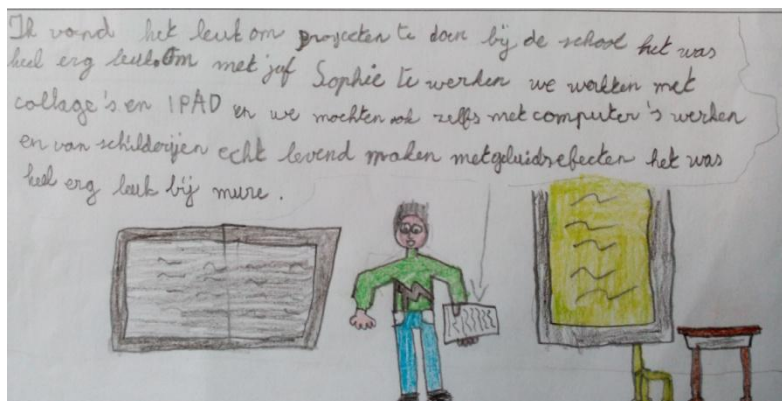 Ik vond het leuk om projecten te doen bij de school het was
heel erg leuk. Om met juf Sophie te werken we werkten met
collage's en IPAD en we mochten ook zelfs met computer's werken
en van schilderijen echt levend maken met geluidsefecten het was
heel erg leuk bij mure.